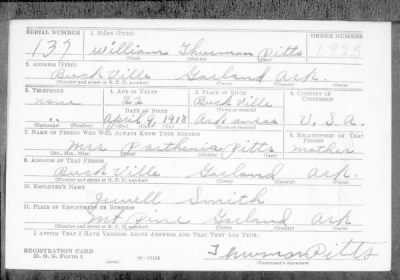 SERIAL NUMBER 1. NAME (Print) ORDER NUMBER
137 William Thurman Pitts 1925
(First) (Middle) (Last)
2. ADDRESS (Print)
Buckville Garland Ark.
(Number and street or R. F. D. number) (Town) (County) (State)
3. TELEPHONE 4. AGE IN YEARS 5. PLACE OF BIRTH 6. COUNTRY OF CITIZENSHIP
none 22 Buckville
DATE OF BIRTH
" April 9, 1918 Arkansas U.S.A.
(Exchange) (Number) (Mo.) (Day) (Yr.) (State or country)
7. NAME OF PERSON WHO WILL ALWAYS KNOW YOUR ADDRESS 8. RELATIONSHIP OF THAT PERSON
Mrs Parthenia Pitts mother
(Mr., Mrs., Miss) (First) (Middle) (Last)
9. ADDRESS OF THAT PERSON
Buckville Garland Ark.
(Number and street or R. F. D. number) (Town) (County) (State)
10. EMPLOYER'S NAME
Jewell Smith
11. PLACE OF EMPLOYMENT OR BUSINESS
Mt Pine Garland Ark
(Number and street or R. F. D. number) (Town) (County) (State)
I AFFIRM THAT I HAVE VERIFIED ABOVE ANSWERS AND THAT THEY ARE TRUE.
REGISTRATION CARD
D. S. S. Form 1 Thurman Pitts
(over) (Registrant's signature)